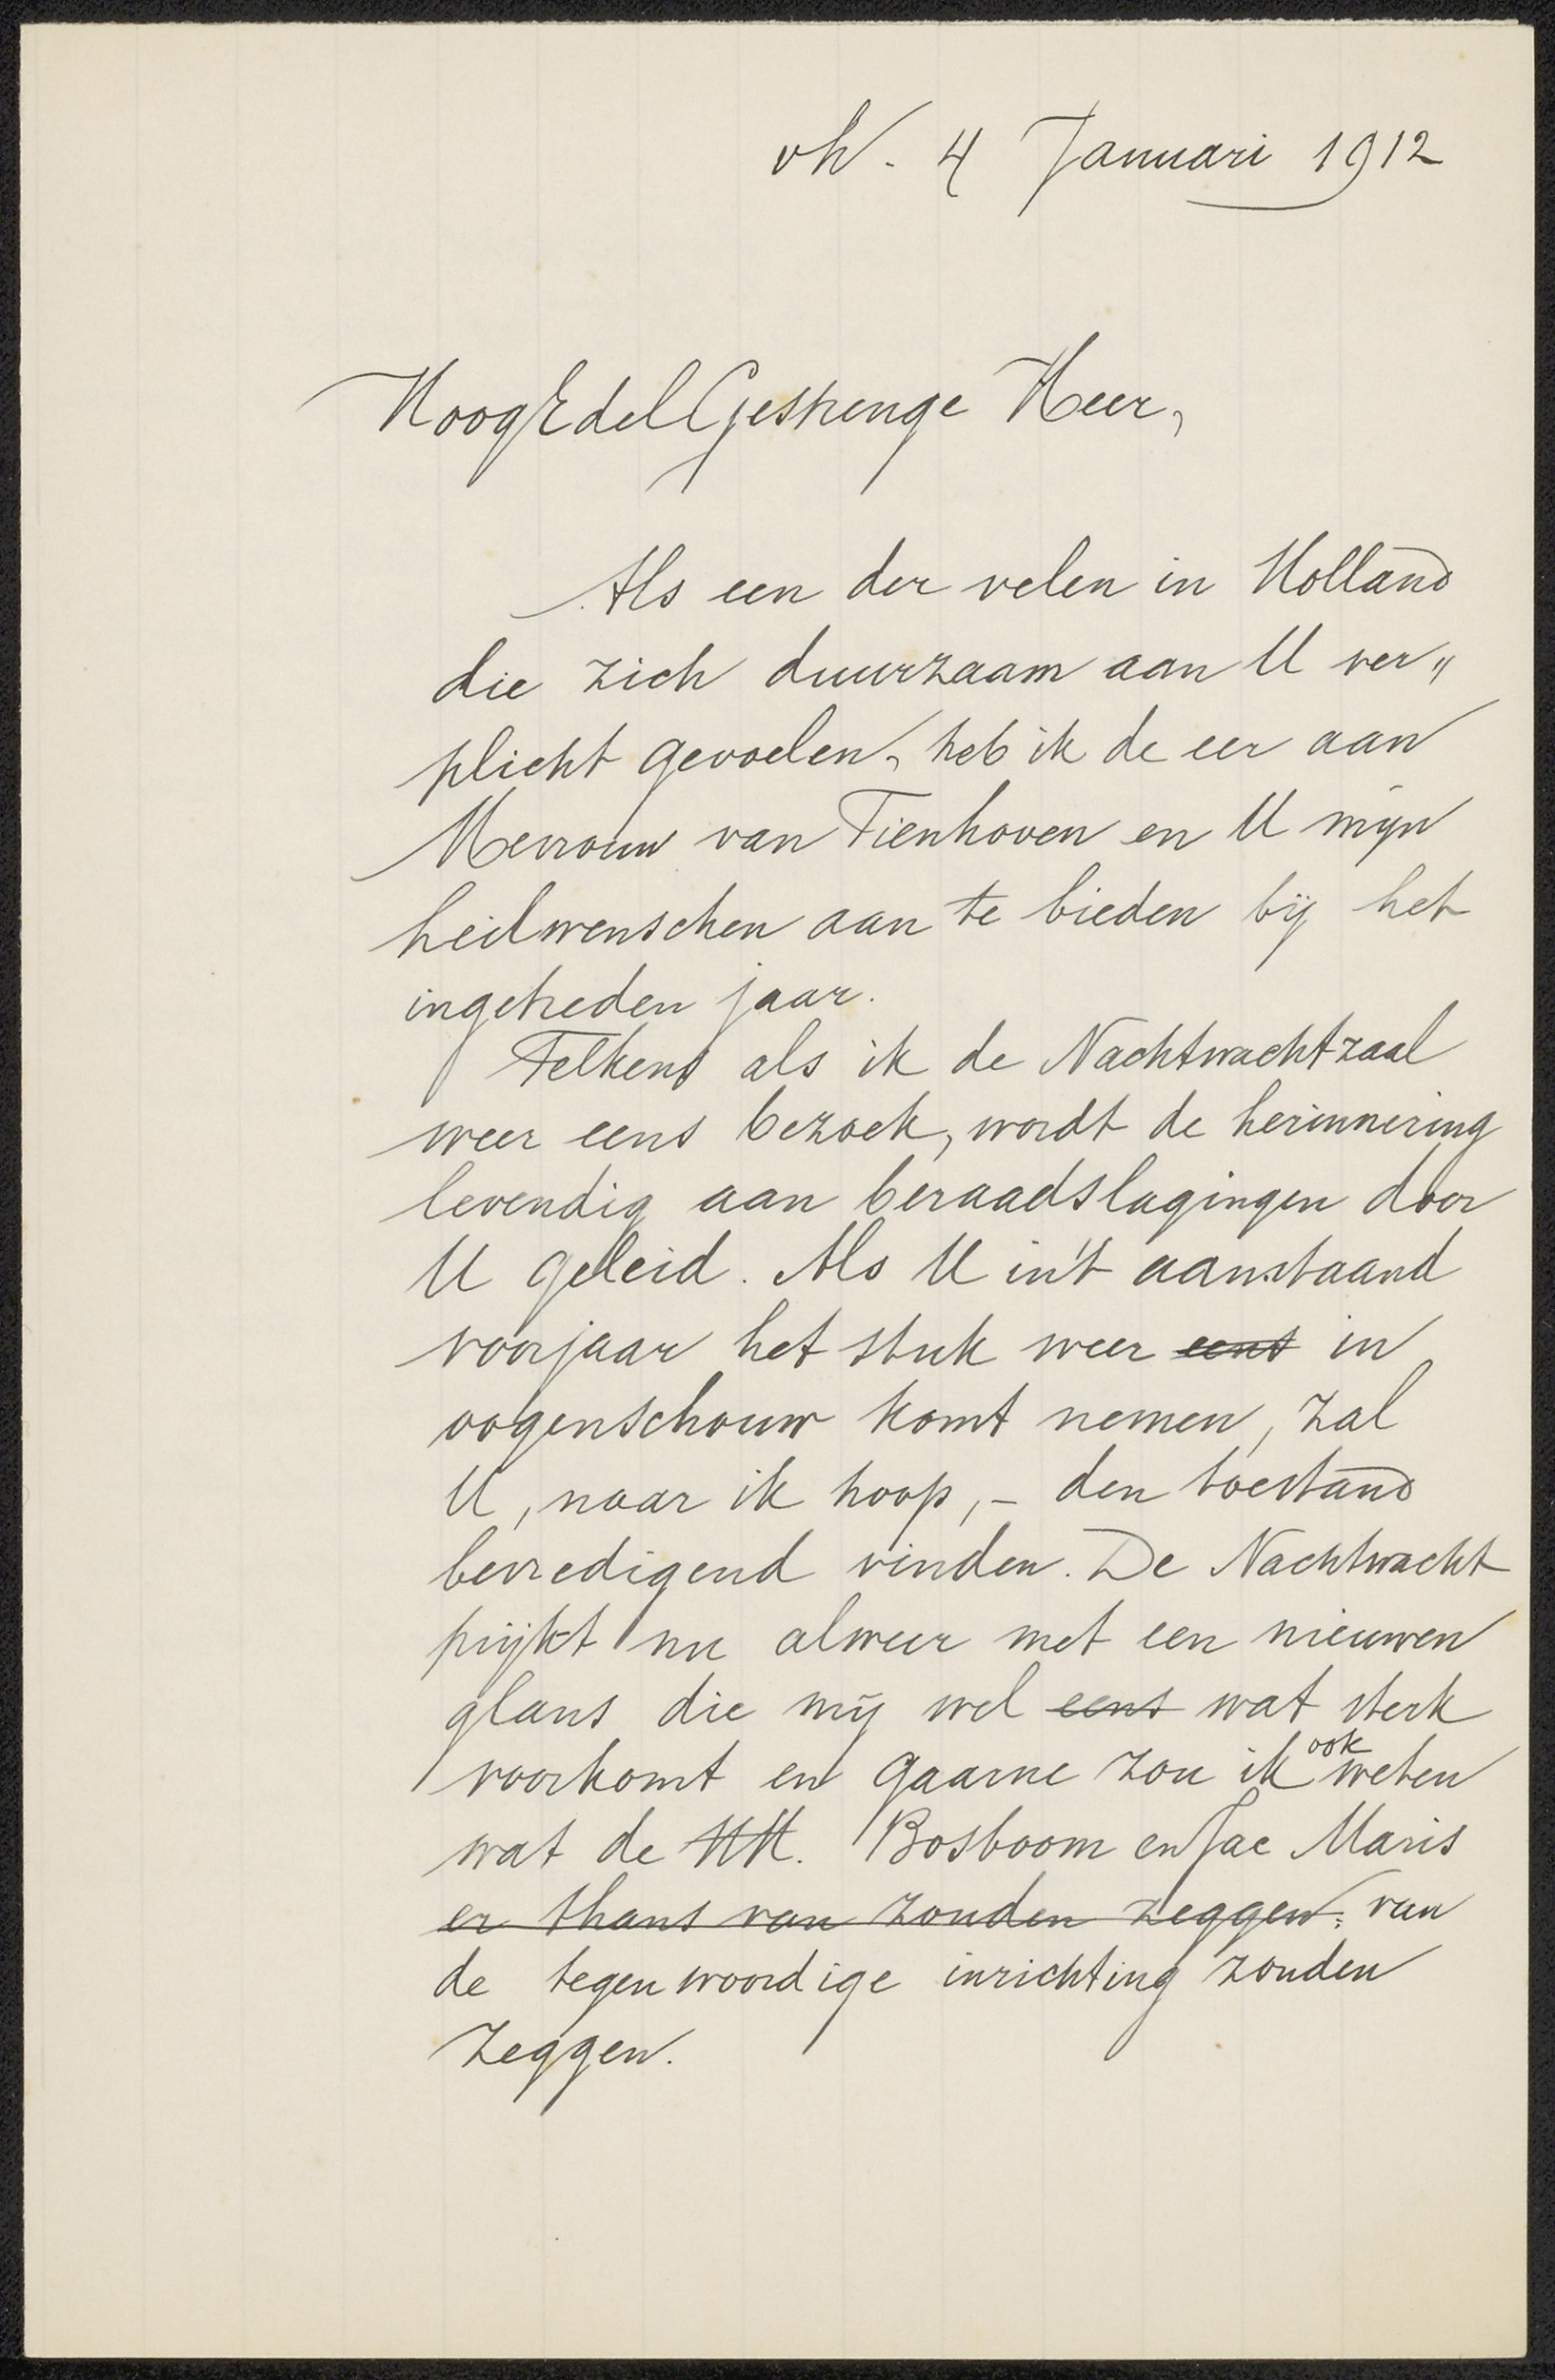 vh. 4 Januari 1912
HoogEdelGestrenge Heer,
Als een der velen in Holland
die zich duurzaam aan U ver„
plicht gevoelen, heb ik de eer aan
Mevrouw van Tienhoven en U mijn
heilwenschen aan te bieden bij het
ingetreden jaar.
Telkens als ik de Nachtwachtzaal
weer eens bezoek, wordt de herinnering
levendig aan beraadslagingen door
U geleid. Als U in't aanstaand
voorjaar het stuk weer eens in
oogenschouw komt nemen, zal
U, naar ik hoop, – den toestand
bevredigend vinden. De Nachtwacht
prijkt nu alweer met een nieuwen
glans die mij wel eens wat sterk
voorkomt en gaarne zou ik ook weten
wat de HH. Bosboom en Jac Maris
er thans van zouden zeggen. van
de tegenwoordige inrichting zouden
zeggen.